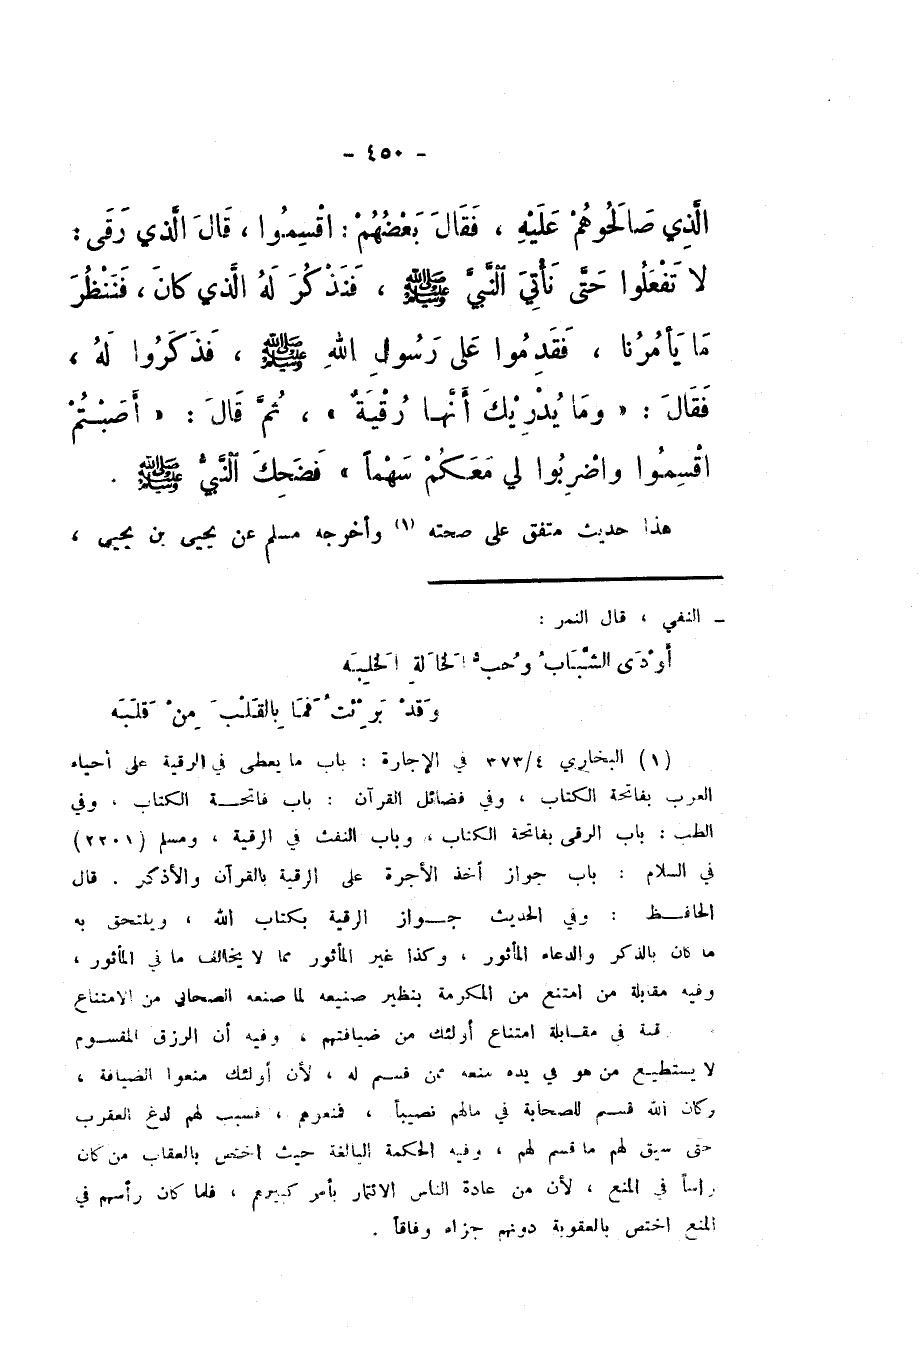 - ٤٥٠ -
الَّذِي صَالَحُوهُمْ عَلَيْهِ ، فَقَالَ بَعْضُهُمْ : اقْسِمُوا ، قَالَ الَّذي رَقَى :
لا تَفْعَلُوا حَتَّى نَأْتِيَ النَّبِيَّ ﷺ ، فَنَذْكُرَ لَهُ الَّذي كانَ ، فَنَنْظُرَ
مَا يَأمُرُنا ، فَقَدِمُوا عَلى رَسُولِ اللهِ ﷺ ، فَذَكَرُوا لَهُ ،
فَقَالَ : « ومَا يُدْرِيْكَ أَنَّهَا رُقْيَةٌ » ، ثُمَّ قَالَ : « أَصَبْتُمْ
اقْسِمُوا واضْرِبُوا لي مَعَكُمْ سَهْماً » فَضَحِكَ النَّبيُّ ﷺ .
هذا حديث متفق على صحته (١) وأخرجه مسلم عن يحيى بن يحيى ،
ـ النفي ، قال النمر :
أَوْدَى الشَّبَابُ وحُبُّ الخَالَةِ الخَلِبَه
وقَدْ بَرِئْتُ فَمَا بِالقَلْبِ مِنْ قَلَبَه
(١) البخاري ٣٧٣/٤ في الإجارة : باب ما يعطى في الرقية على أحياء
العرب بفاتحة الكتاب ، وفي فضائل القرآن : باب فاتحة الكتاب ، وفي
الطب : باب الرقى بفاتحة الكتاب ، وباب النفث في الرقية ، ومسلم (٢٢٠١)
في السلام : باب جواز أخذ الأجرة على الرقية بالقرآن والأذكر . قال
الحافظ : وفي الحديث جواز الرقية بكتاب الله ، ويلتحق به
ما كان بالذكر والدعاء المأثور ، وكذا غير المأثور مما لا يخالف ما في المأثور ،
وفيه مقابلة من امتنع من المكرمة بنظير صنيعه لما صنعه الصحابي من الامتناع
في مقابلة امتناع أولئك من ضيافتهم ، وفيه أن الرزق المقسوم
لا يستطيع من هو في يده منعه ممن قسم له ، لأن أولئك منعوا الضيافة ،
وكان الله قسم للصحابة في مالهم نصيباً ، فمنعوهم ، فسبب لهم لدغ العقرب
حتى سيق لهم ما قسم لهم ، وفيه الحكمة البالغة حيث اختص بالعقاب من كان
رأساً في المنع ، لأن من عادة الناس الائتمار بأمر كبيرهم ، فلما كان رأسهم في
المنع اختص بالعقوبة دونهم جزاء وفاقاً .